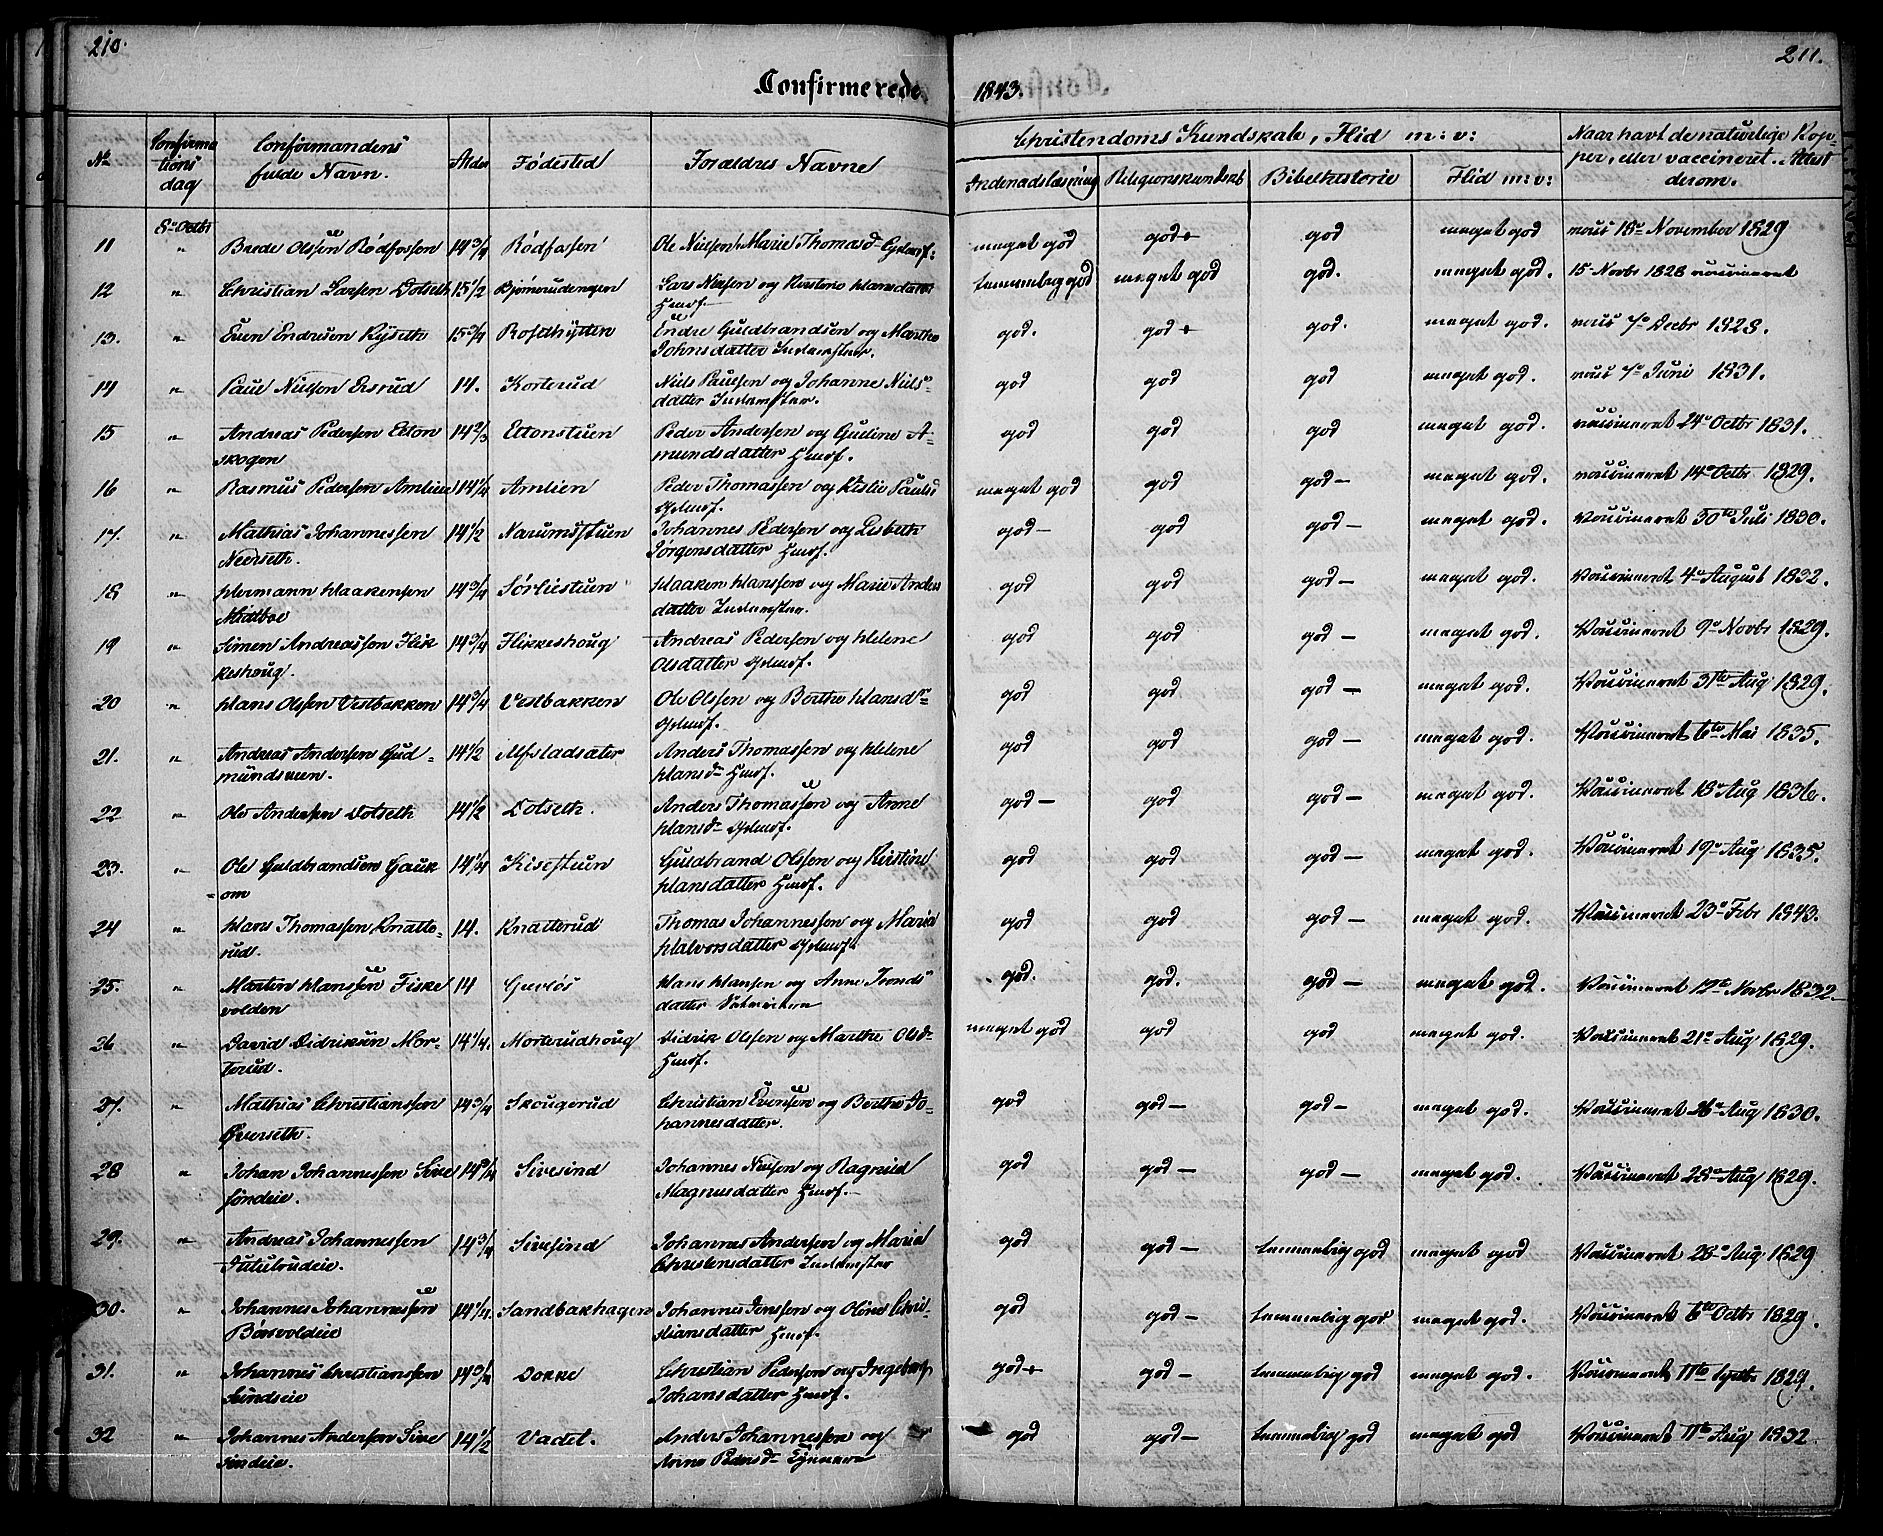 210.
211.
Confirmerede
1843.
No
Confirmations dag
Confirmandens fulde Navn.
Alder
Fødested
Forældres Navne
Christendoms Kundskab, Flid m: v:
Indenadslæsning
Religionskundskb
Bibelhistorie
Flid m: v:
Naar havt de naturlige Kopper, eller vaccineret. Attest derom.
11 8de Octbr " Brede Olssen Rødfossen 14 3/4 Rødfossen Ole Nielsen, Marie Thomasd Gaardf: meget god god+ god meget god 18de November 1829
12 " Christian Larsen Dotseth 15 1/2 Bjørnerudengen Lars Nielsen og Kirstine Hansdatter Huusf. temmelig god meget god god. meget god. 15 Novbr 1828 vaccineret
13. " Even Endresen Ryseth 15 3/4 Endre Guldbrandsen og Marthe Johnsdatter Inderster. god. god+ god. meget god. 7de Decbr 1828.
14 " Paul Nielsen Eisrud 14. Korterud Niels Paulsen og Johanne Nielsdatter Inderster. god god god meget god. 7de Juni 1831.
15 " Andreas Pedersen Etton skogen 14 2/3 Ettonstuen Peder Andersen og Guline Amundsdatter Huusf. god god god meget god. vaccineret 24de Octbr 1831.
16 " Rasmus Pedersen Amlien 14 1/4 Amlien Peder Thomassen og Kislie Paulsd meget god god god- meget god. vaccineret 14de Octbr 1829.
17. " Mathias Johannessen Neerseth. 14 1/2 Narumsstuen Johannes Pedersen og Lisbeth Jørgensdatter Huusf. god- god god- meget god. Vaccineret 30te Juli 1830.
18 " Hermann Haakensen Midtboe 14 3/4 Sørliestuen Haaken Hanssen og Marie Anders datter Inderster. god god god- meget god. Vaccineret 4de August 1832.
19 " Simen Andreassen Flik keshoug. 14 3/4 Flikkeshoug Andreas Pedersen og Helene Olsdatter god god god- meget god. Vaccineret 9de Novbr 1829.
20 " Hans Olssen Vestbakken 14 3/4 Vestbakken Ole Olssen og Berthe Hansdr god god god- meget god. Vaccineret 31te Aug 1829.
21. " Andreas Andersen Gudmundsveen. 14 1/2 Alfstadsæter Anders Thomassen og Helene Hansdr Huusf. god god god- meget god. Vaccineret 6te Mai 1835.
22 " Ole Andersen Dotseth 14 1/2 Dotseth. Anders Thomassen og Anne Hansdr god- god god- meget god. Vaccineret 18de Aug 1836.
23. " Ole Guldbrandsen Gaukom 14 1/4 Kisestuen Guldbrand Olssen og Kirstine Hansdatter Huusf. god god god- meget god. Vaccineret 19de Aug 1835.
24 " Hans Thomassen Knatterud. 14. Knatterud Thomas Johannessen og Maria Halvorsdatter god god god- meget god. Vaccineret 23de Febr 1843.
25. " Martin Hanssen Fiske volden 14 Hans Hansen og Anne Tronds datter god. god. god- meget god. Vaccineret 12te Novbr 1832.
26 " David Didriksen Morterud. 14 1/4. Morterudhoug Didrik Olssen og Marthe Olsd Huusf. meget god god god meget god. Vaccineret 21de Aug 1829.
27. " Mathias Christianssen Øverseth. 14 3/4 Skougerud Christian Evensen og Berthe Johannesdatter. god god- god- meget god. Vaccineret 26de Aug 1830.
28 " Johan Johannessen Sivesindeie. 14 3/4 Sivesind Johannes Nielsen og Ragnild Magnusdatter Huusf. god god- god- meget god. Vaccineret 28de Aug 1829.
29. " Andreas Johannessen Jutulrudeie. 14 3/4 Sivesind Johannes Andersen og Maria Christensdatter Inderster god god- temmelig god meget god Vaccineret 28de Aug 1829
30. " Johannes Johannessen Børsvoldeie 14 1/4. Sandbakhagen Johannes Jenssen og Oline Christiansdatter Huusf. god god- temmelig god meget god. Vaccineret 6te Octbr 1829.
31. " Johannes Christianssen Sundseie 14 3/4 Dokke Christian Pedersen og Ingeborg Johansdatter Huusf. god+ god- temmelig god meget god. Vaccineret 11te Septbr 1829.
32 " Johannes Andersen Sivesindeie. 14 1/2 Vadet. Anders Johannessen og Anne Pedersdr god god- temmelig god meget god Vaccineret 11te Aug 1832